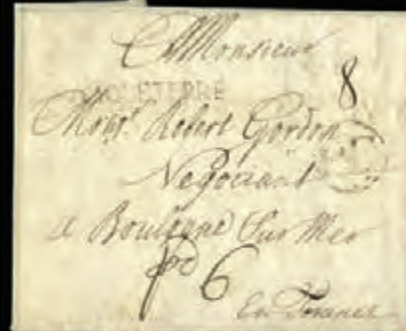 A Monsieur
ANGLETERRE
8
Monsr. Robert Gordon
Negociant
a Boulogne Sur Mer
pd 6
En France